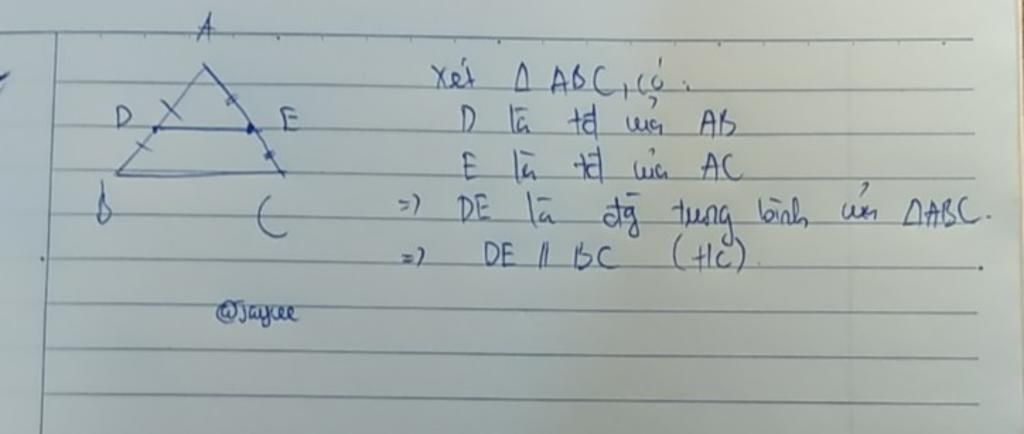 A
Xét Δ ABC, có:
D E
D là tđ của AB
E là tđ của AC
B C
=> DE là đg trung bình của ΔABC.
=> DE // BC (t/c)
@jaycee